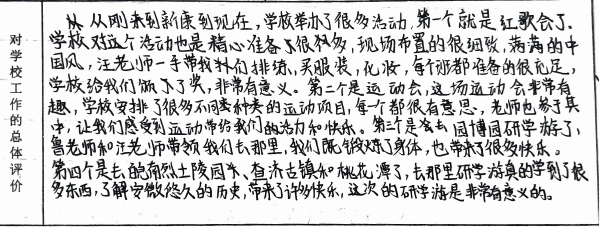 对学校工作的总体评价
从从刚来到新康到现在，学校举办了很多活动，第一个就是红歌会了。
学校对这个活动也是精心准备了很多，现场布置的很细致，满满的中
国风，汪老师一手带我们排练，买服装，化妆，每个班都准备的很充足，
学校给我们颁了奖，非常有意义。第二个是运动会，这场运动会非常有
趣，学校安排了很多不同种类的运动项目，每个都很有意思，老师也参于其
中，让我们感受到运动带给我们的活力和快乐。第三个是去园博园研学游了，
鲁老师和汪老师带领我们去那里，我们既锻炼了身体，也带来了很多快乐。
第四个是去皖南烈士陵园、查济古镇和桃花潭了，去那里研学游真的学到了很
多东西，了解安徽悠久的历史，带来了许多快乐，这次的研学游是非常有意义的。